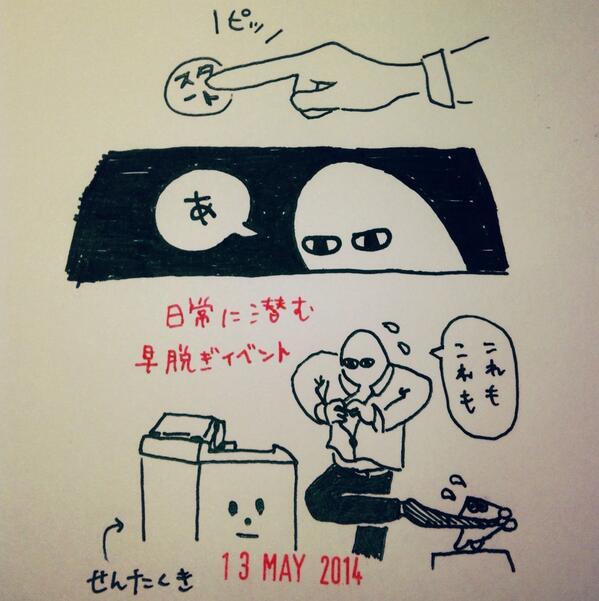 ピッ
スタ
ート
あ
日常に潜む
早脱ぎイベント
これも
これも
せんたくき
13 MAY 2014